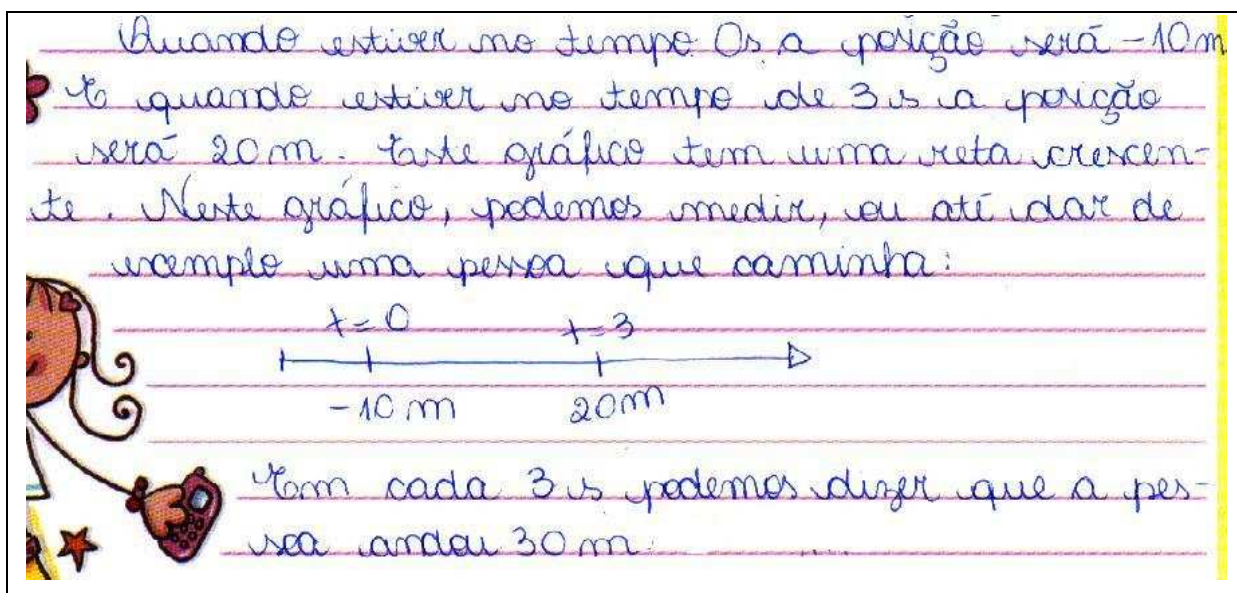 Quando estiver no tempo 0s a posição será -10m
E quando estiver no tempo de 3s a posição
será 20m. Este gráfico tem uma reta crescen-
te. Neste gráfico, podemos medir, ou até dar de
exemplo uma pessoa que caminha:
t=0 t=3
-10m 20m
Em cada 3s podemos dizer que a pes-
soa andou 30m.